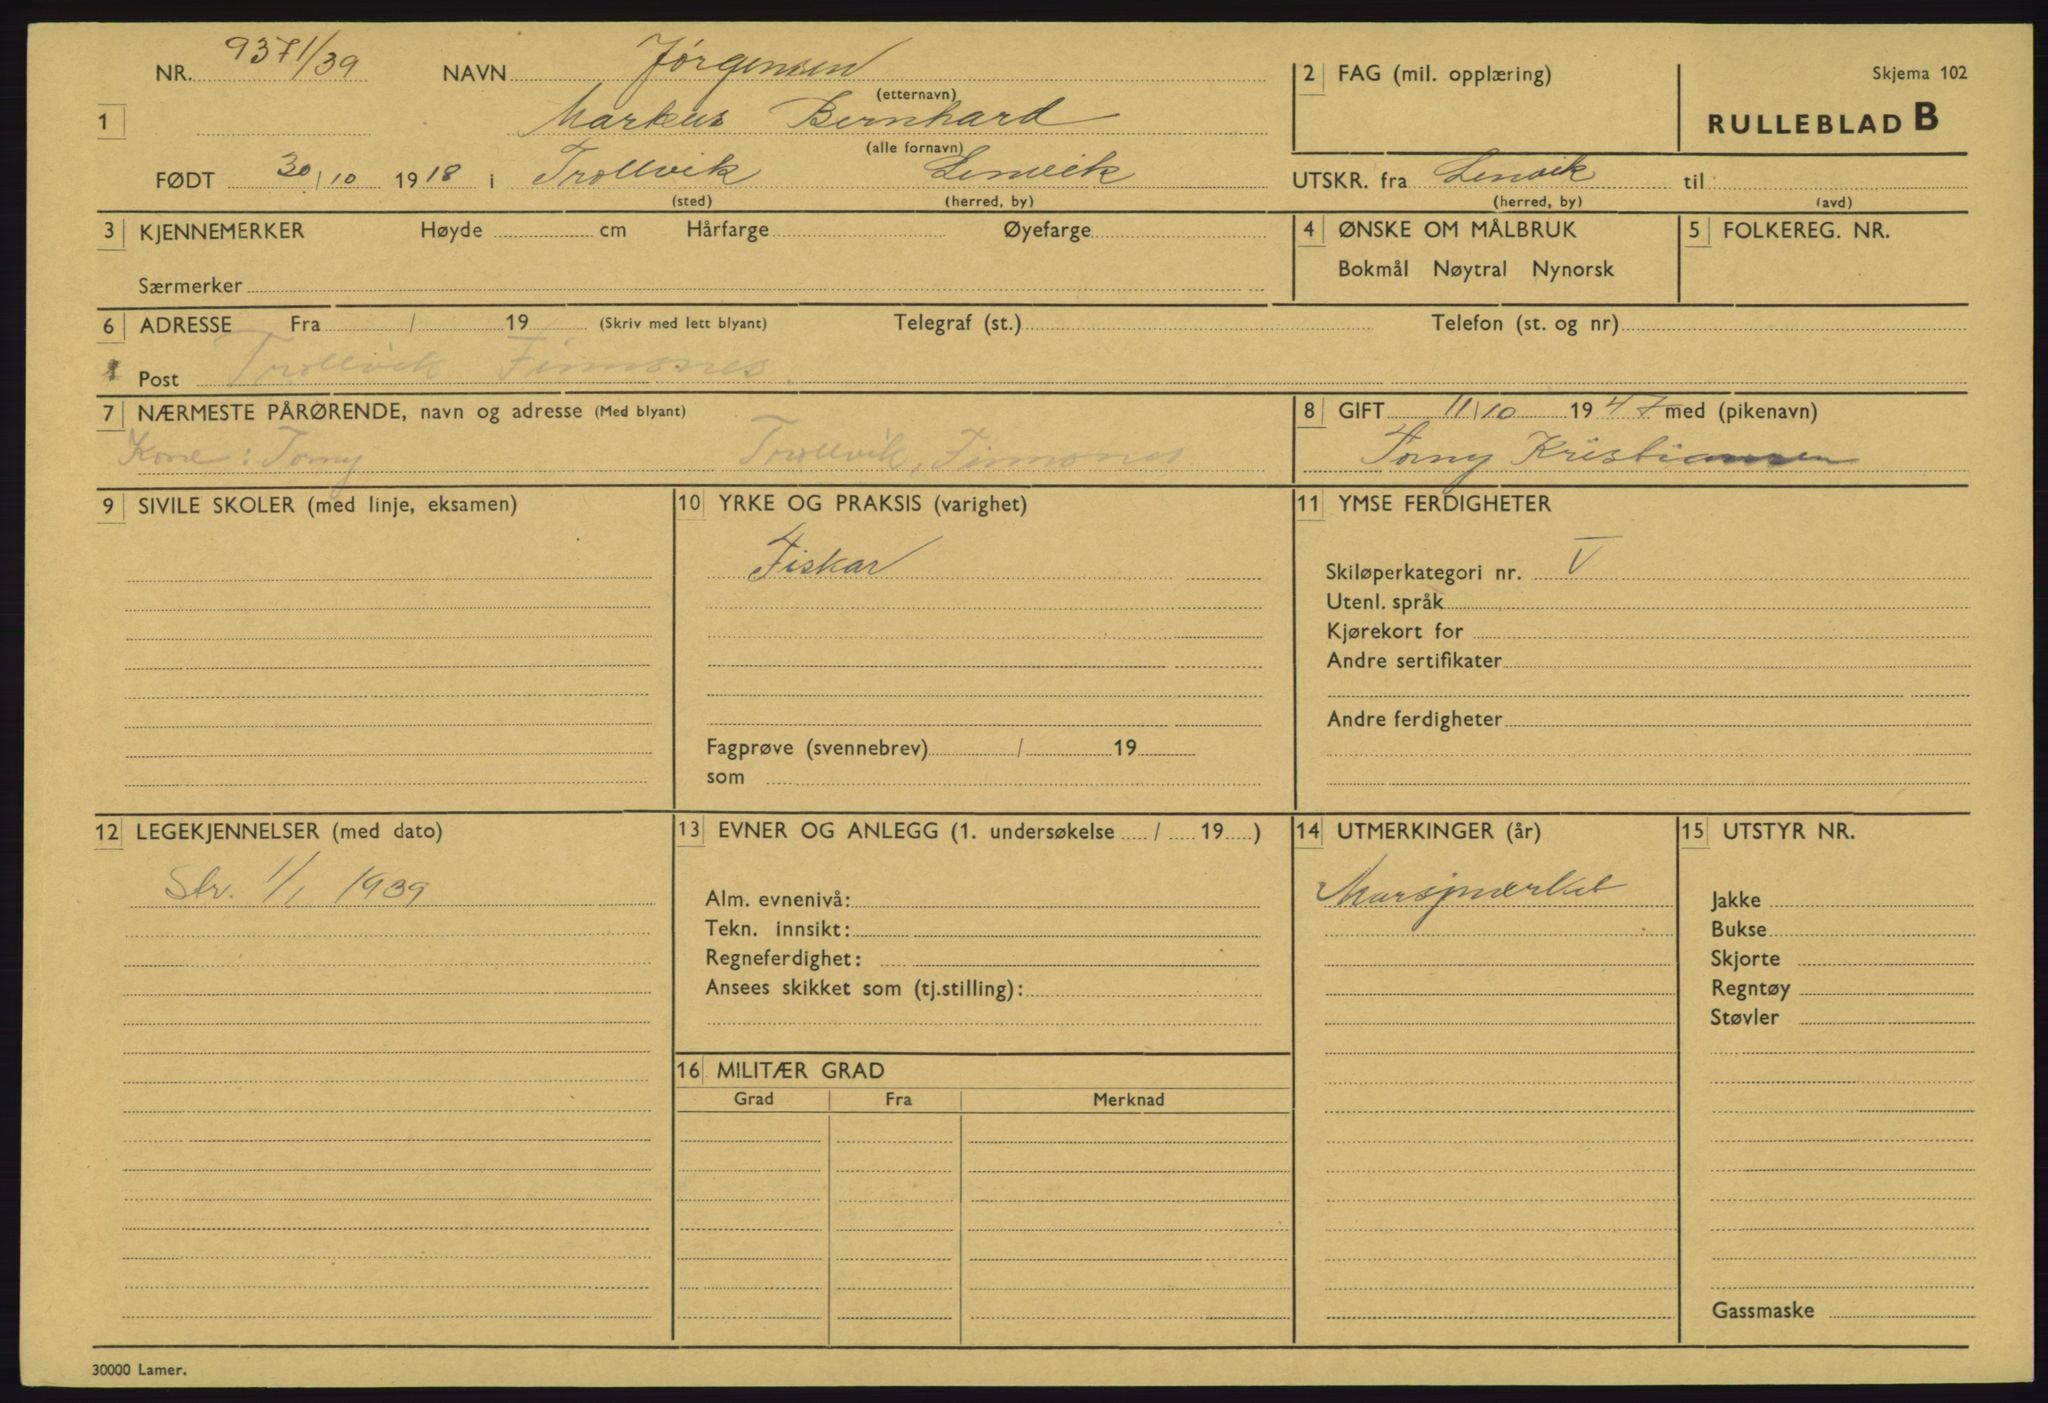 NR. 9371/39 NAVN Jørgensen 2 FAG (mil. opplæring) Skjema 102
(etternavn)
1 Markus Bernhard RULLEBLAD B
(alle fornavn)
FØDT 30/10 1918 i Trollvik Lenvik UTSKR. fra Lenvik til
(sted) (herred, by) (herred, by) (avd)
3 KJENNEMERKER Høyde cm Hårfarge Øyefarge 4 ØNSKE OM MÅLBRUK 5 FOLKEREG. NR.
Bokmål Nøytral Nynorsk
Særmerker
6 ADRESSE Fra / 19 (Skriv med lett blyant) Telegraf (st.) Telefon (st. og nr)
Post Trollvik Finnsnes
7 NÆRMESTE PÅRØRENDE, navn og adresse (Med blyant) 8 GIFT 11/10 1947 med (pikenavn)
Kone: Torny Trollvik, Finnsnes Torny Kristiansen
9 SIVILE SKOLER (med linje, eksamen) 10 YRKE OG PRAKSIS (varighet) 11 YMSE FERDIGHETER
Fiskar
Skiløperkategori nr. V
Utenl. språk
Kjørekort for
Andre sertifikater
Andre ferdigheter
Fagprøve (svennebrev) / 19
som
12 LEGEKJENNELSER (med dato) 13 EVNER OG ANLEGG (1. undersøkelse / 19 ) 14 UTMERKINGER (år) 15 UTSTYR NR.
Str. 1/1 1939 Alm. evnenivå: Marsjmerket Jakke
Tekn. innsikt: Bukse
Regneferdighet: Skjorte
Ansees skikket som (tj.stilling): Regntøy
Støvler
16 MILITÆR GRAD
Grad Fra Merknad
Gassmaske
30000 Lamer.